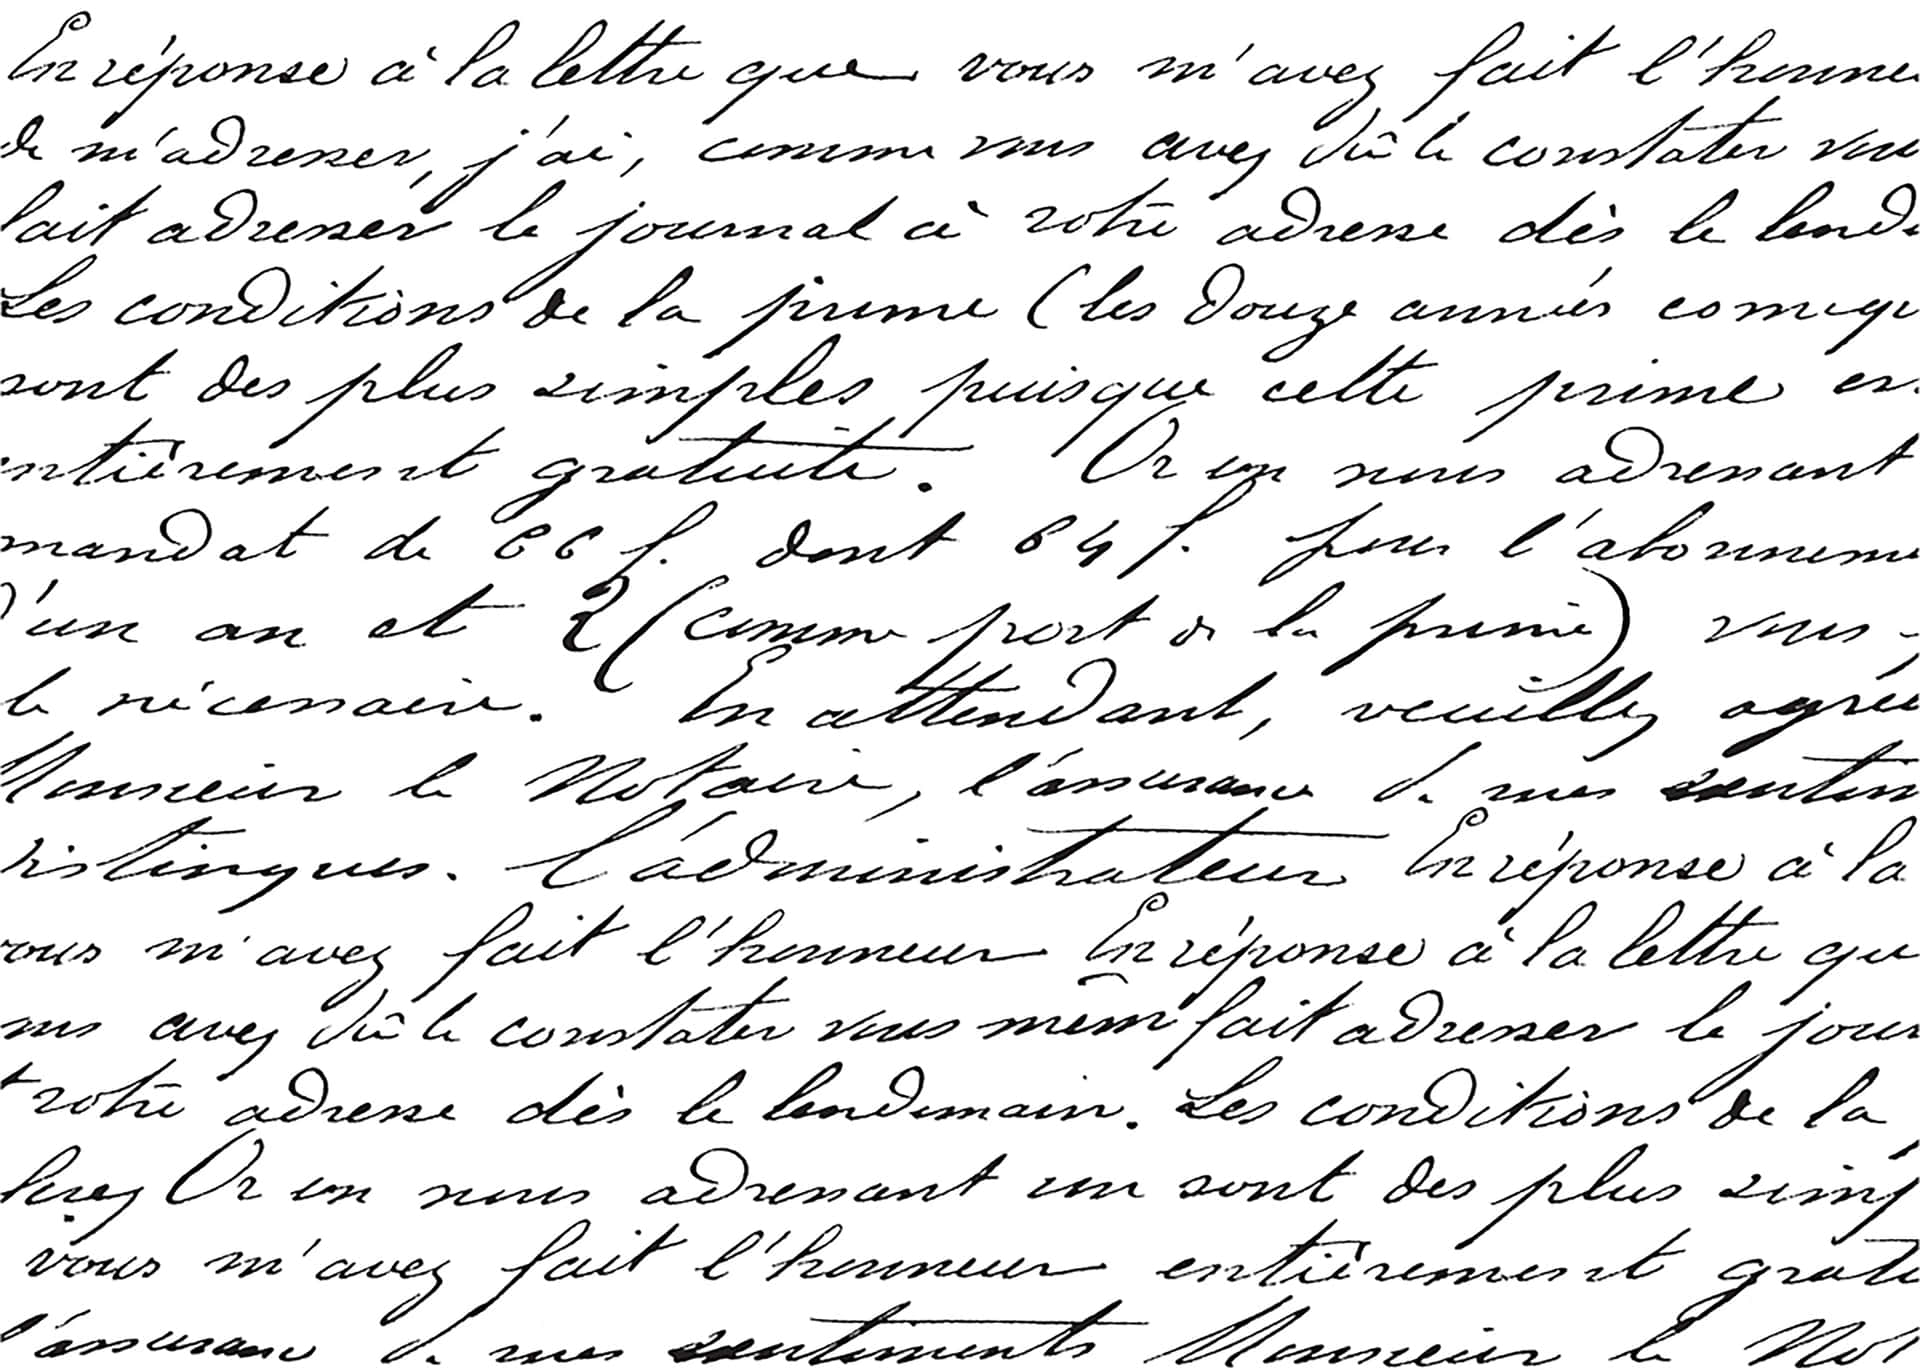 En réponse à la lettre que vous m'avez fait l'honne
de m'adresser, j'ai, comme vous avez dû le constater vou
fait adresser le journal à votre adresse dès le lende
Les conditions de la prime (les douze années comiqu
sont des plus simples puisque cette prime es
entièrement gratuite. Or en nous adressant
mandat de 66 f. dont 64 f. pour l'abonneme
d'un an et 2 (comme port de la prime) vous
le nécessaire. En attendant, veuillez agrée
Monsieur le Notaire, l'assurance de mes sentim
distingues. L'administrateur En réponse à la
vous m'avez fait l'honneur En réponse à la lettre qu
vous avez dû le constater vous mêm fait adresser le jour
votre adresse dès le lendemain. Les conditions de la
Or en nous adressant un sont des plus simp
vous m'avez fait l'honneur entièrement gratu
l'assurance de mes sentiments Monsieur le Not